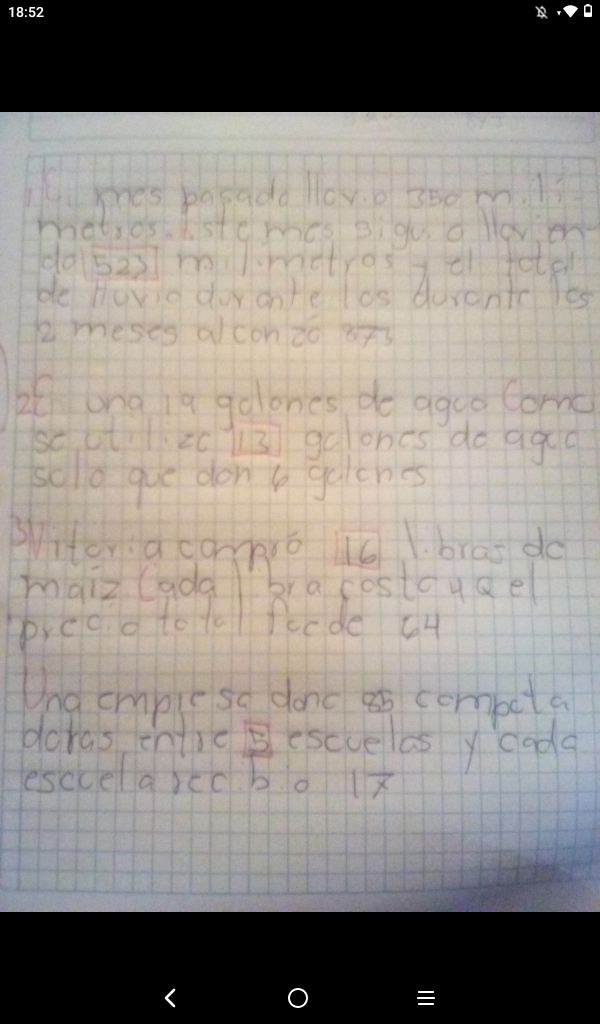 18:52
1 E. mes pasado llovio 350 mili-
metros. Este mes siguio llovien-
do 523 milimetros y el total
de lluvia durante los durante los
2 meses alcanzó 873
2 E una 19 galones de agua Como
se utilizc 13 galones de agua
solo que dan 6 galones
3 Vitoria compró 16 libras de
maiz Cada libra costo 4 Q el
precio total fue de 64
Una empresa dono 85 computa
doras entre 5 escuelas y cada
escuela recibio 17